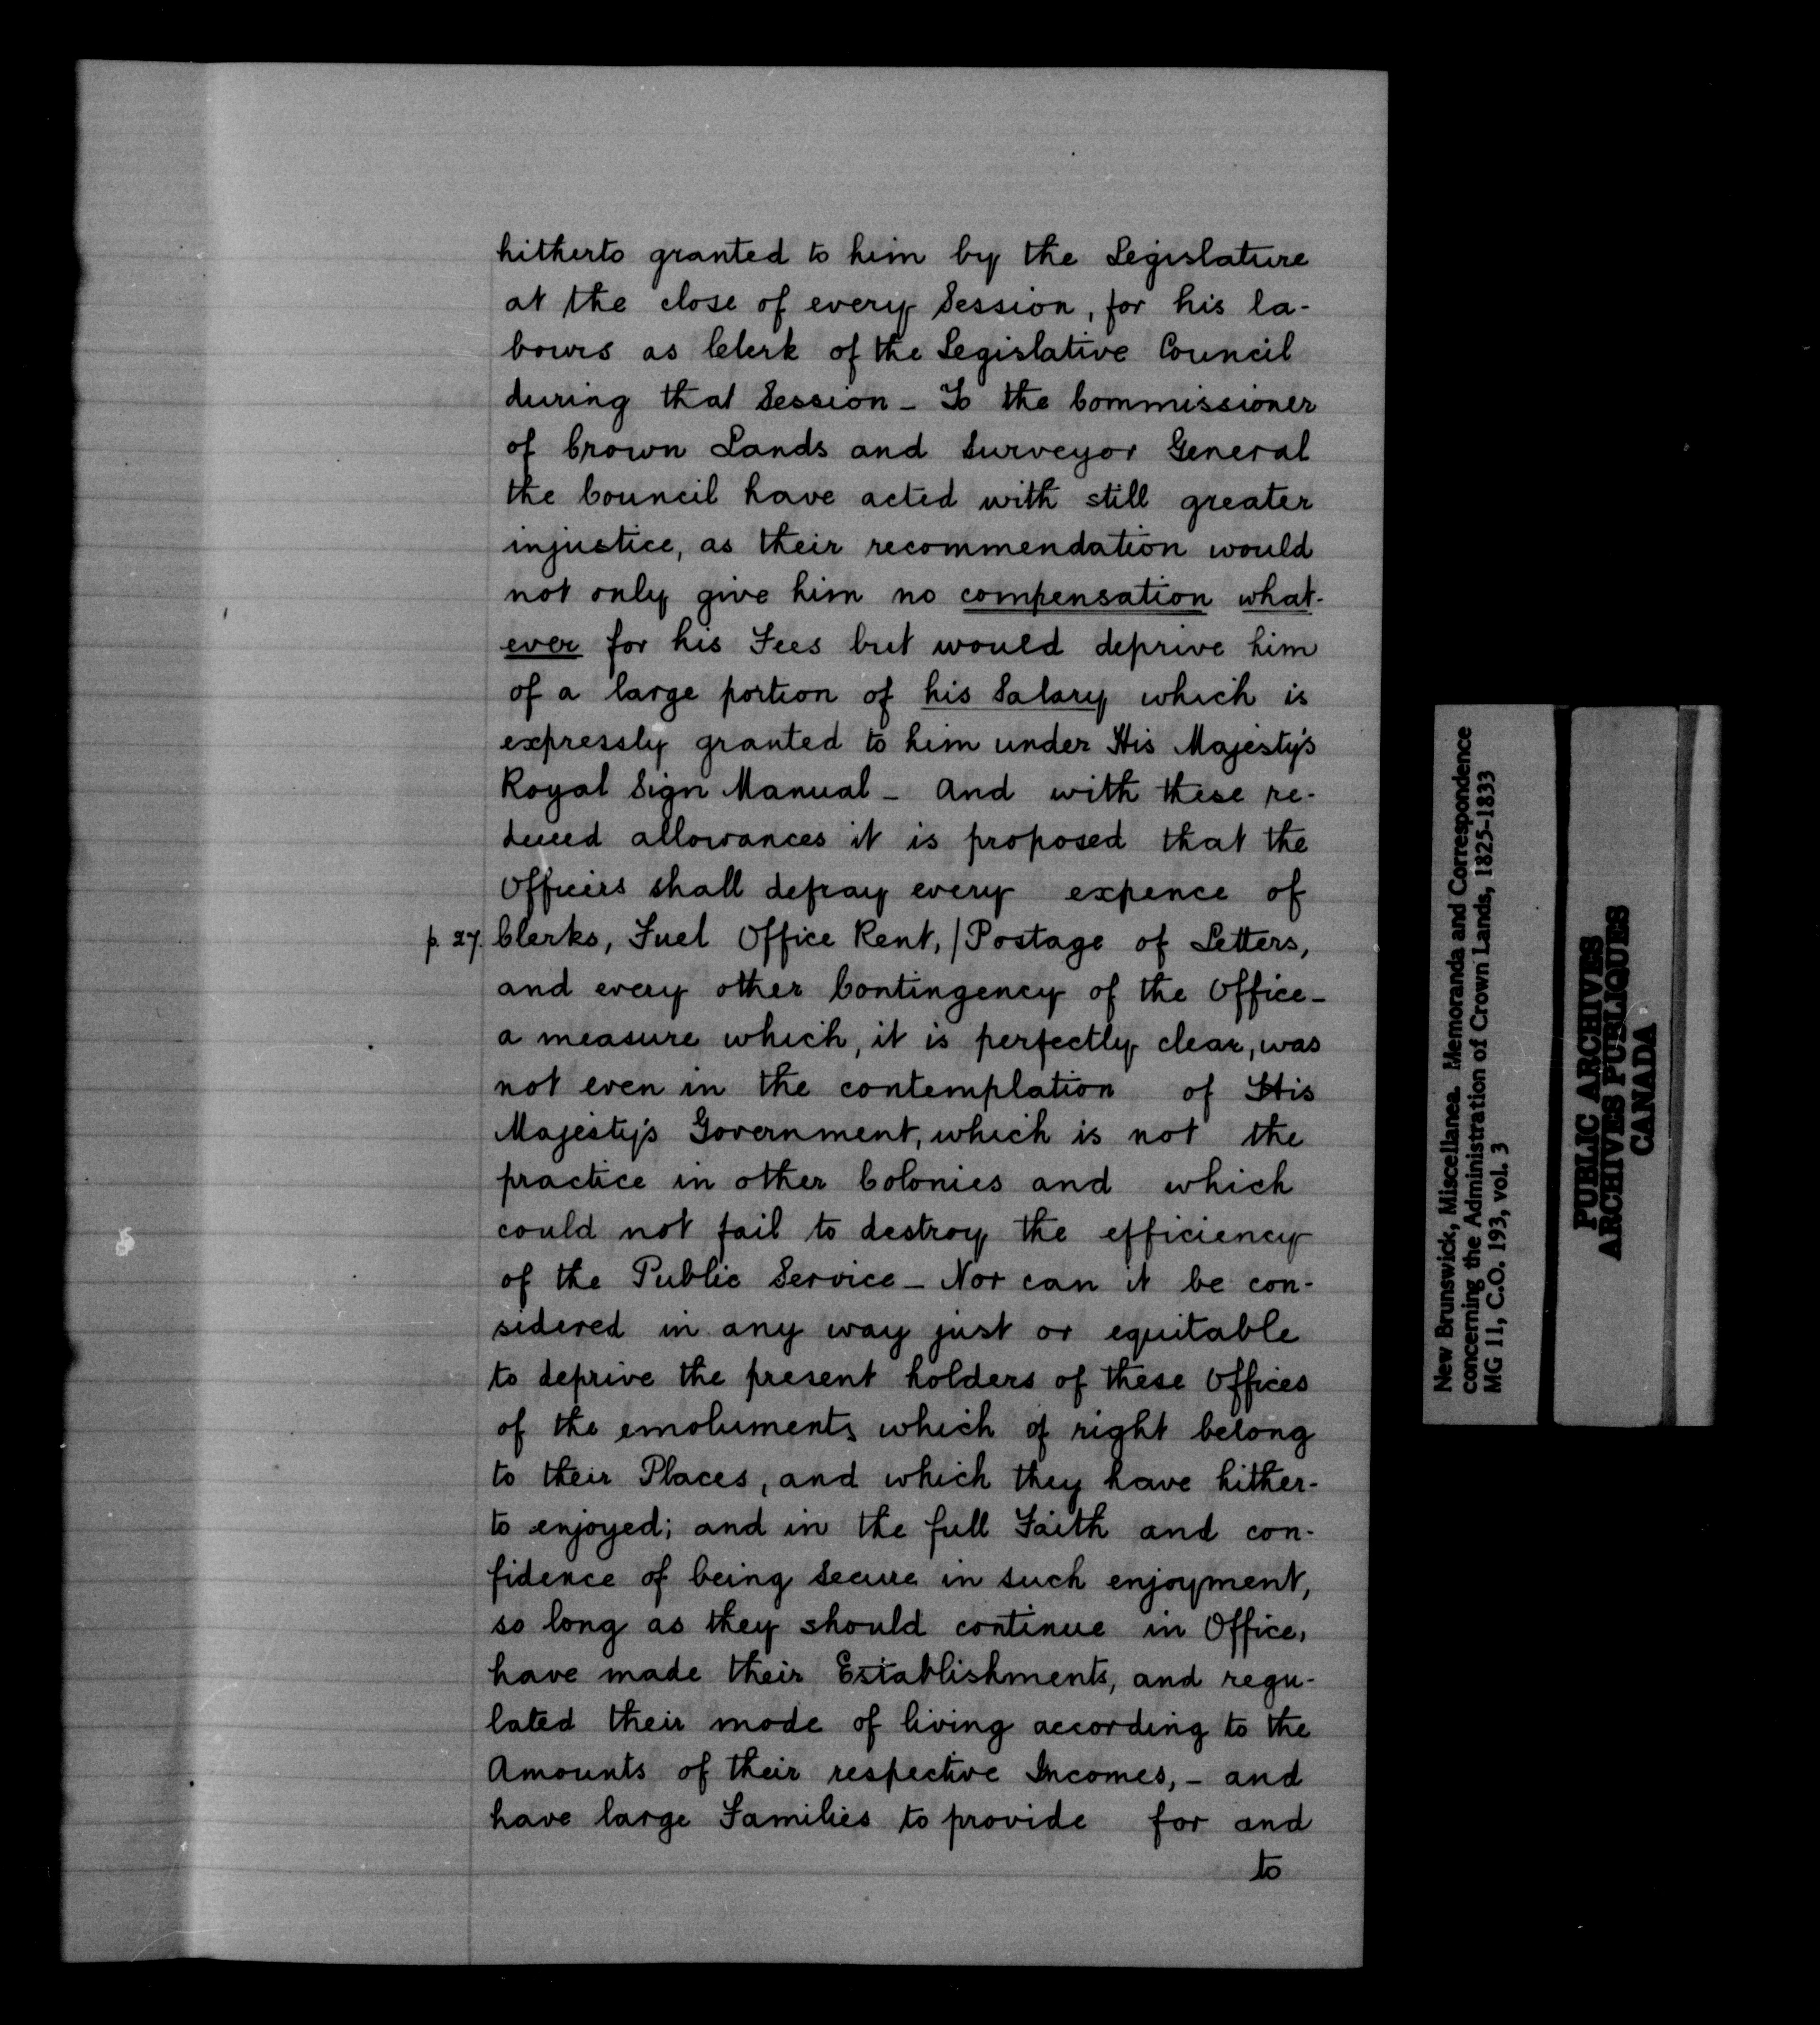 hitherto granted to him by the Legislature
at the close of every Session, for his la-
bours as Clerk of the Legislative Council
during that Session - To the Commissioner
of Crown Lands and Surveyor General
the Council have acted with still greater
injustice, as their recommendation would
not only give him no compensation what-
ever for his Fees but would deprive him
of a large portion of his Salary which is
expressly granted to him under His Majesty's
Royal Sign Manual - And with these re-
duced allowances it is proposed that the
Officers shall defray every expence of
p. 27. Clerks, Fuel Office Rent, / Postage of Letters,
and every other Contingency of the Office -
a measure which, it is perfectly clear, was
not even in the contemplation of His
Majesty's Government, which is not the
practice in other Colonies and which
could not fail to destroy the efficiency
of the Public Service - Nor can it be con-
sidered in any way just or equitable
to deprive the present holders of these Offices
of the emoluments which of right belong
to their Places, and which they have hither-
to enjoyed; and in the full Faith and con-
fidence of being secure in such enjoyment,
so long as they should continue in Office,
have made their Establishments, and regu-
lated their mode of living according to the
Amounts of their respective Incomes, - and
have large Families to provide for and
to
New Brunswick, Miscellanea. Memoranda and Correspondence
concerning the Administration of Crown Lands, 1825-1833
MG 11, C.O. 193, vol. 3
PUBLIC ARCHIVES
ARCHIVES PUBLIQUES
CANADA